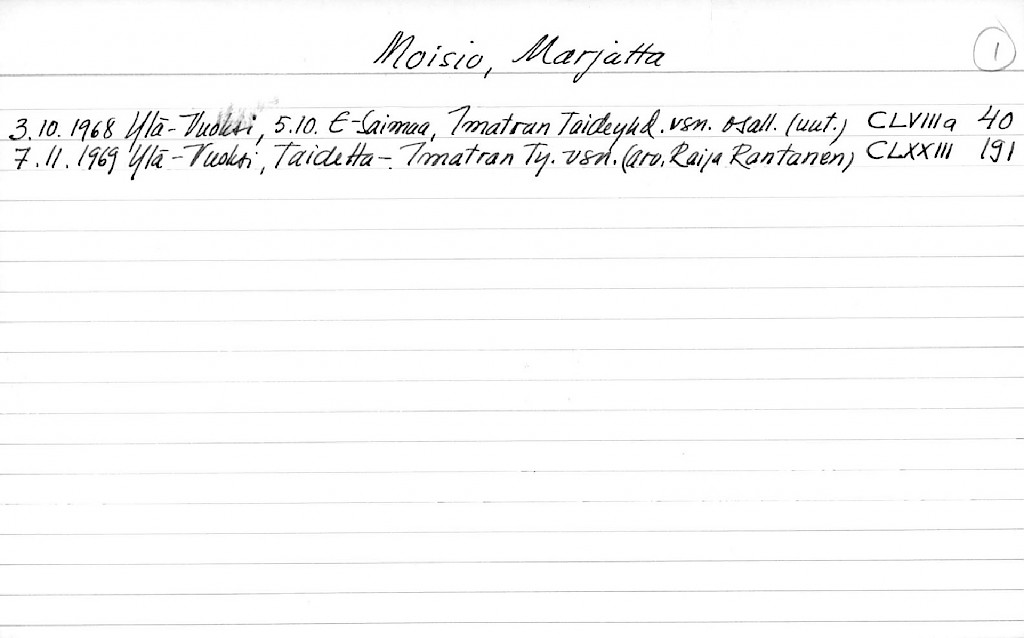 Moisio, Marjatta
1
3.10.1968 Ylä-Vuoksi, 5.10. E-Saimaa, Imatran Taideyhd. vsn. osall. (uut.) CLVIIIa 40
7.11.1969 Ylä-Vuoksi, Taidetta - Imatran Ty. vsn. (arv. Raija Rantanen) CLXXIII 191